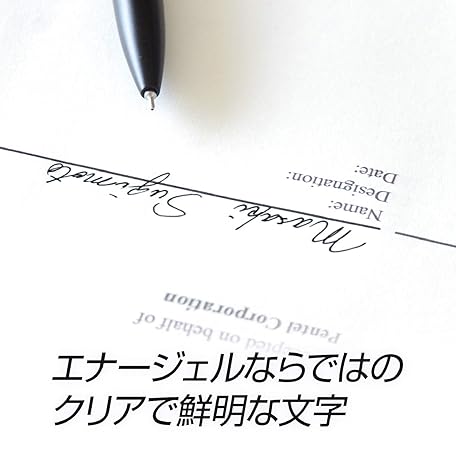 epted on behalf of
Pentel Corporation
Masaki Sugimoto
Name:
Designation:
Date:
エナージェルならではの
クリアで鮮明な文字